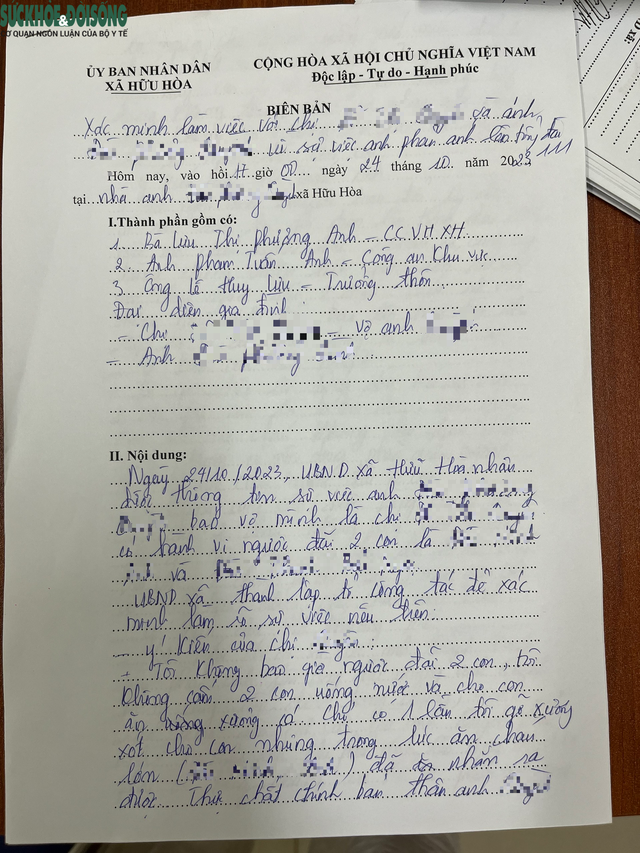 SỨCKHỎE&ĐỜISỐNG
CƠ QUAN NGÔN LUẬN CỦA BỘ Y TẾ
ỦY BAN NHÂN DÂN
XÃ HỮU HÒA
CỘNG HÒA XÃ HỘI CHỦ NGHĨA VIỆT NAM
Độc lập - Tự do - Hạnh phúc
BIÊN BẢN
Xác minh làm việc với chị và anh
về sự việc anh phản anh
Hôm nay, vào hồi giờ 00 ngày 24 tháng 10 năm 2023
tại nhà anh xã Hữu Hòa
I.Thành phần gồm có:
1. Bà Lưu Thị Phượng Anh - CC VH XH
2. Anh Phạm Tuấn Anh - Công an Khu vực
3. Ông Lê Huy Lưu - Trưởng thôn
Đại diện gia đình
- Chị - vợ anh
- Anh
II. Nội dung:
Ngày 24/10/2023, UBND xã Hữu Hòa nhận
được thông tin sự việc anh
báo vợ mình là chị
có hành vi ngược đãi 2 con là
và
UBND xã thành lập tổ công tác để xác
minh làm rõ sự việc nêu trên
- Ý kiến của chị
+ Tôi không bao giờ ngược đãi 2 con, tôi
không cấm 2 con uống nước và cho con
ăn xương cá. Chỉ có 1 lần tôi gỡ xương
xót cho con nhưng trong lúc ăn cháu
lớn ( ) đã nhằn ra
được. Thực chất chính bản thân anh